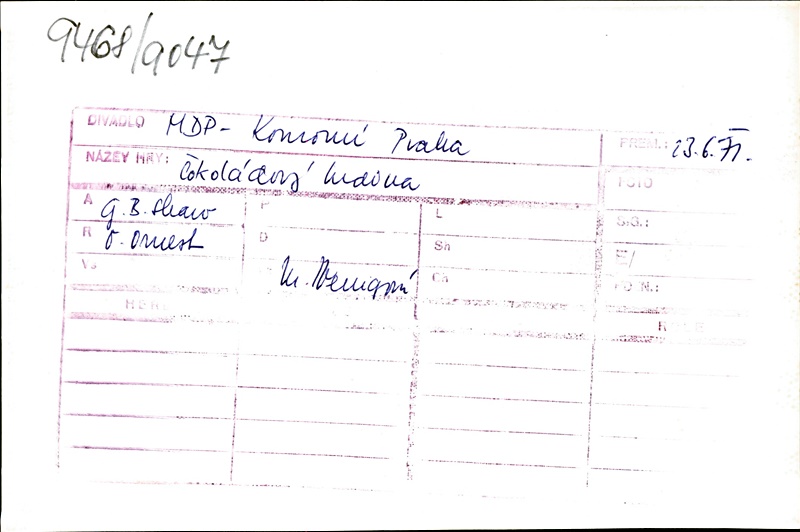 9468/9047
DIVADLO MDP - Komorní Praha PREM.: 23.6.71.
NÁZEV HRY: Čokoládový hrdina FOTO
A G.B. Shaw P L SIG.:
R O. Ornest D Sn
Vs M. Wenigová Ch PO N.: